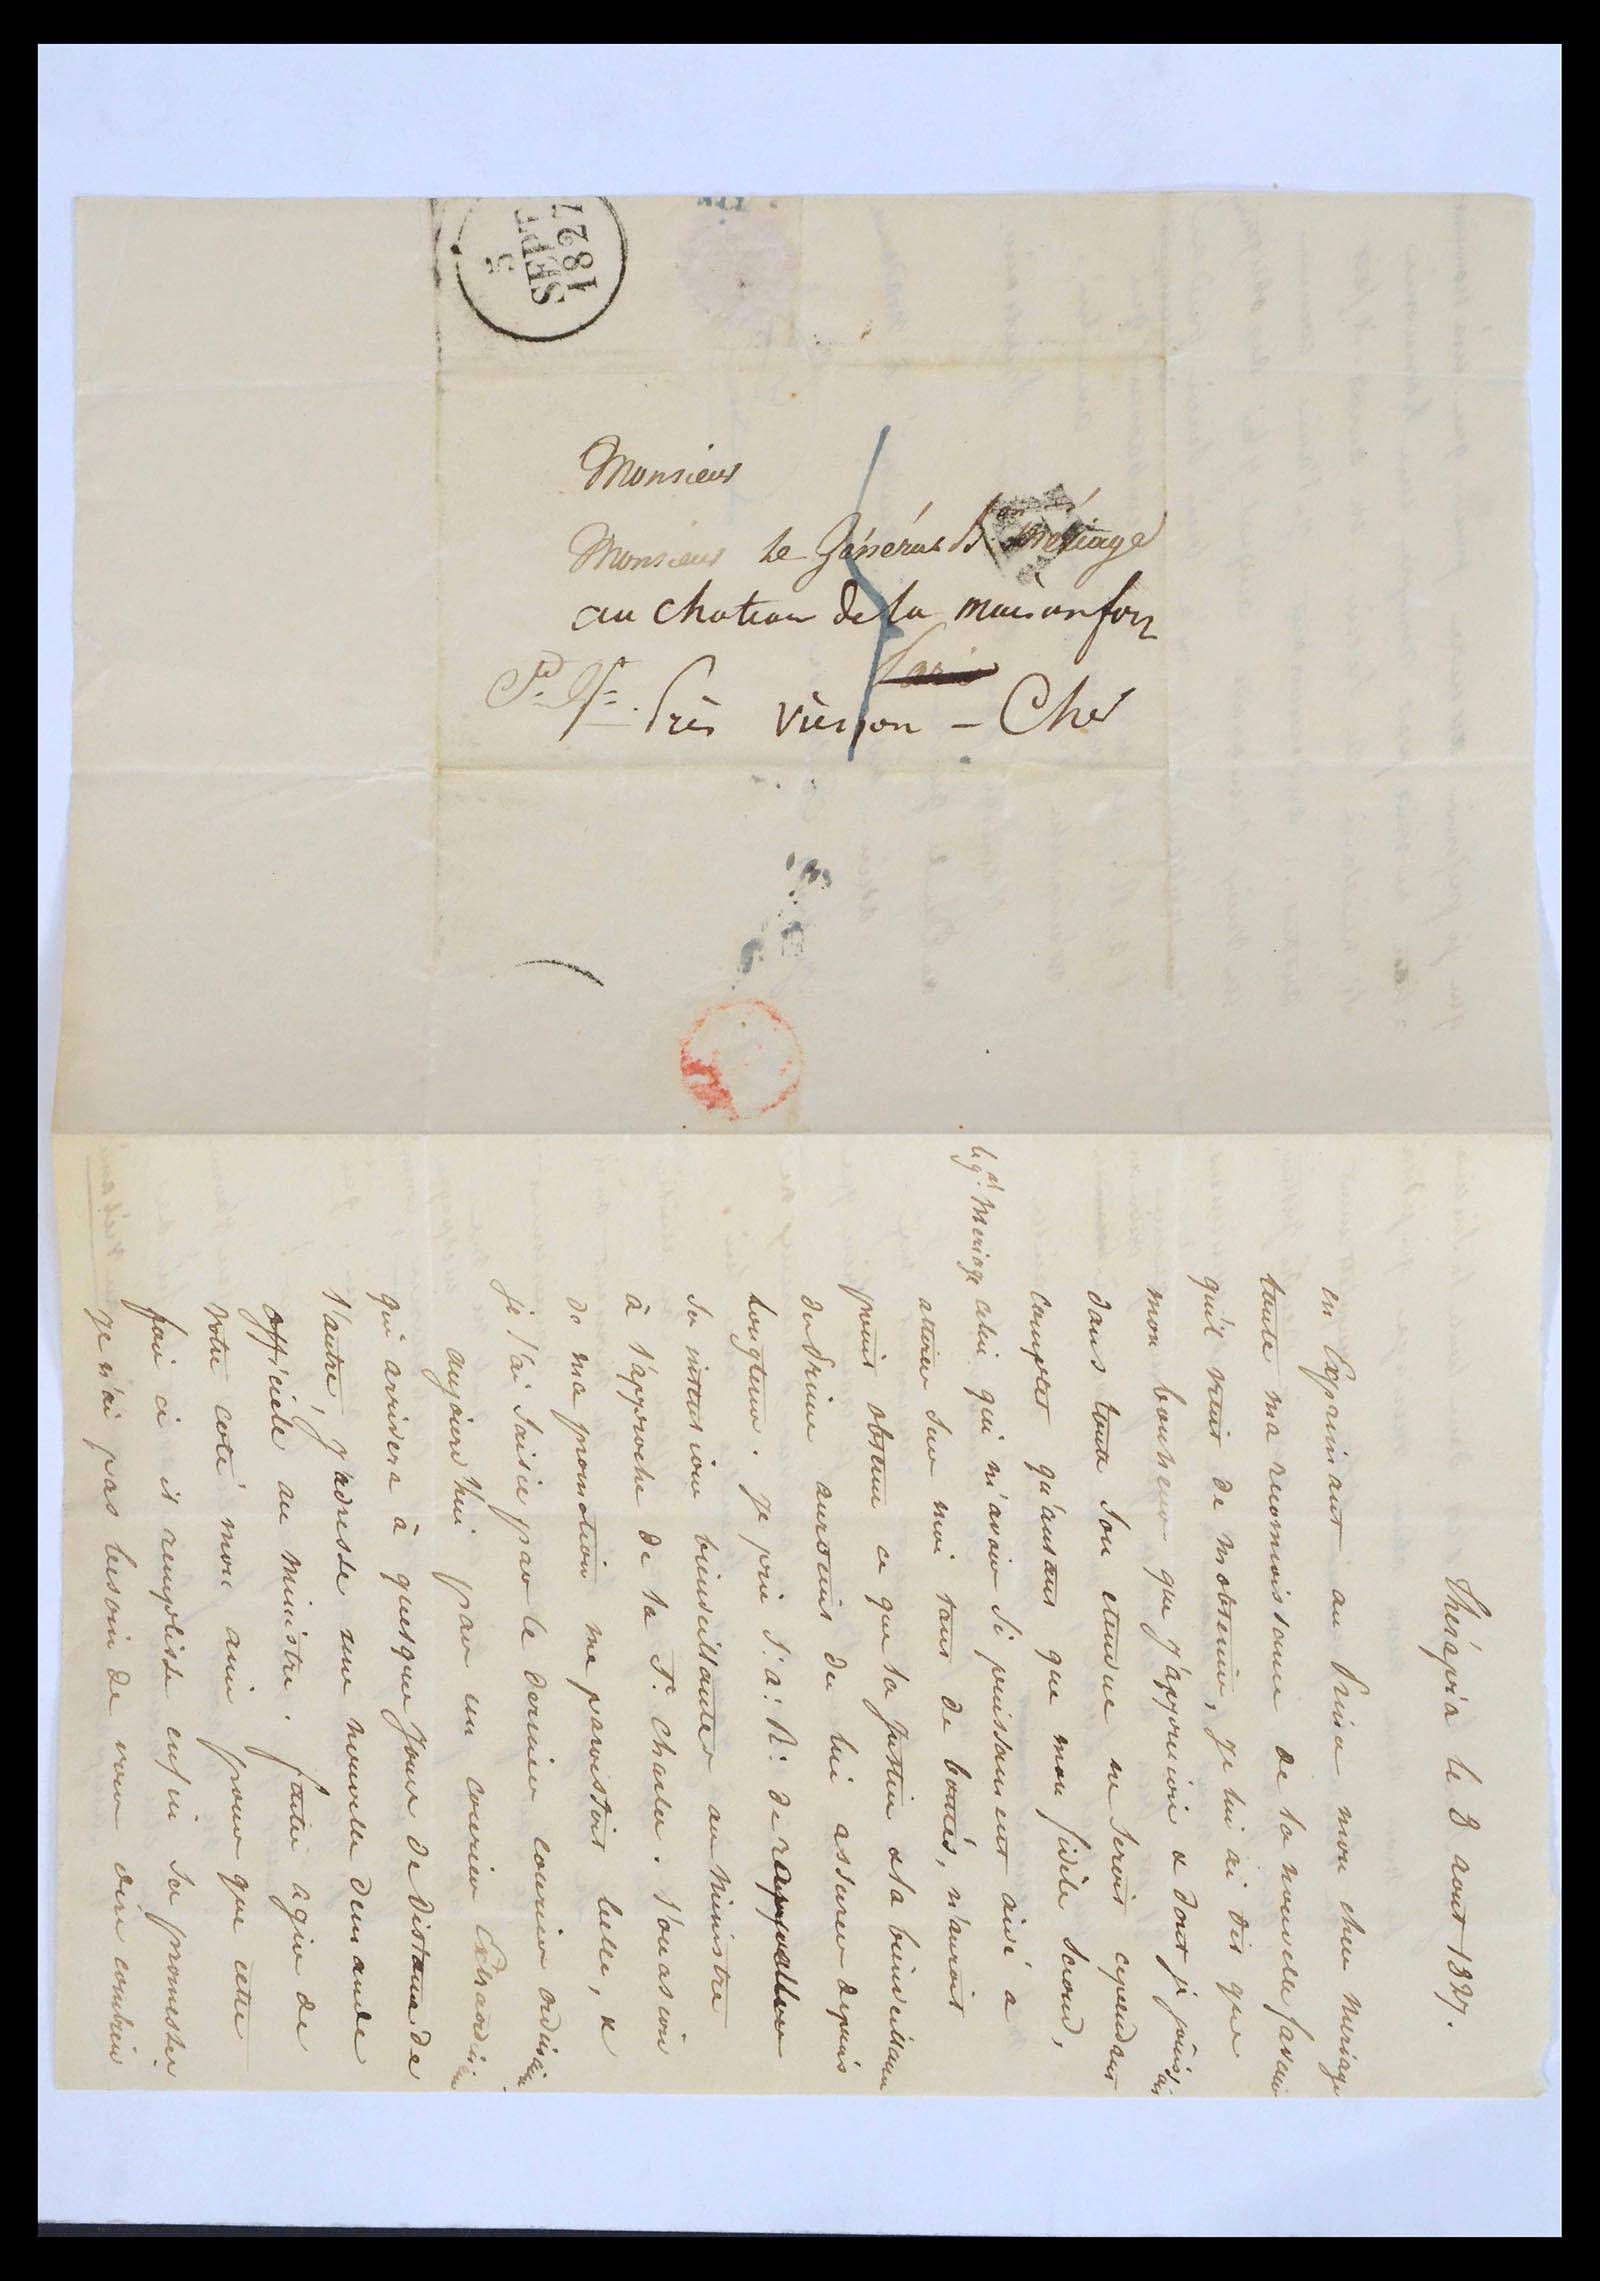 SEPT
5
1827
Monsieur
Monsieur le Général Bon Mériage
au Chateau de la maisonfort
Paris
Près Vierzon – Cher
Thérapia le 8 aout 1827.
en Exprimant au Prince mon cher Meriage
toute ma reconnoissance de la nouvelle faveur
qu'il vient de m'obtenir, je lui ai dis que
mon bonheur que j'apprecie & dont je jouis
dans toute son etendue ne seroit cependant
complet qu'autant que mon fidèle second,
celui qui m'avoit si puissament aidé a
le gal Meriage
attirer sur moi tant de bontés, n'auroit
point obtenu ce que la justice & la bienveillance
du Prince auroient du lui assurer depuis
longtems. je prie S: A: R: de rappeller
ses intentions bienveillantes au Ministre
à l'approche de la St. Charles. l'occasion
de ma promotion me paroissoit belle, &
je l'ai saisie par le dernier courier ordinaire
aujourd'hui par un courier Extraordinaire
qui arrivera à quelque jours de distance de
l'autre, j'adresse une nouvelle demande
officielle au ministre. faites agir de
votre coté mon ami pour que cette
fois ci il remplisse enfin ses promesses.
je n'ai pas besoin de vous dire combien